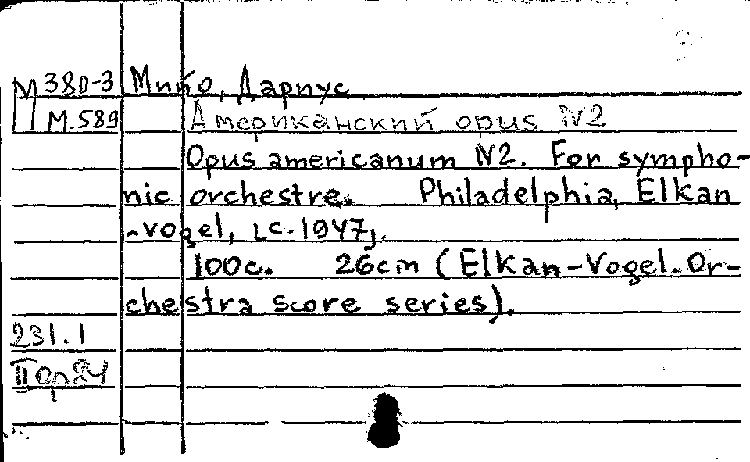 М380-3 Мийо, Дариус
М.589 Американский opus N2
Opus americanum N2. For sympho-
nic orchestre. Philadelphia, Elkan
-vogel, [c.1947].
100c. 26cm (Elkan-Vogel. Or-
chestra score series).
231.1